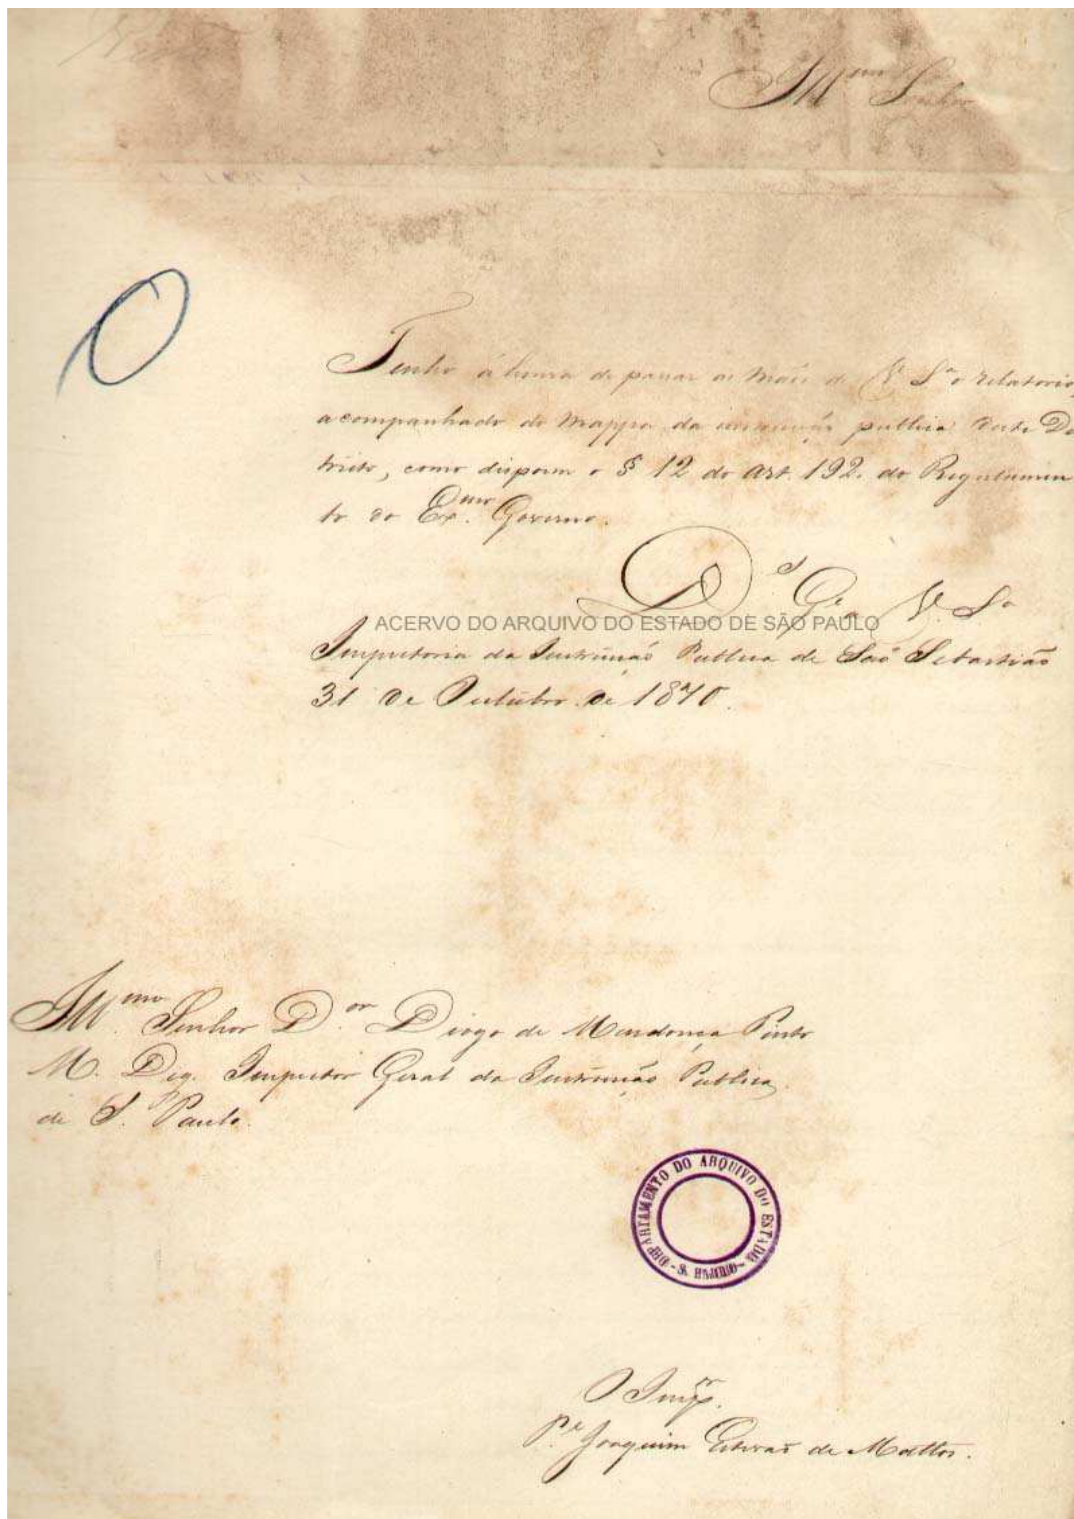 Illmo Senhor
Tenho a honra de passar as mãos de V. Sa o relatorio,
acompanhado do Mappa da instrucção publica deste Des
tricto, como dispoem o § 12 do Art. 192. do Regulamen
to do Exmo. Governo.
Ds Ge V. Sa
ACERVO DO ARQUIVO DO ESTADO DE SÃO PAULO
Inspectoria da Instrucção Publica de São Sebastião
31 de Outubro de 1870.
Illmo. Senhor Dor. Diogo de Mendonça Pinto
M. Dig. Inspector Geral da Instrucção Publica
de S. Paulo.
DEPARTAMENTO DO ARQUIVO DO ESTADO
O Inspor.
Pe. Joaquim Estevaõ de Mattos.